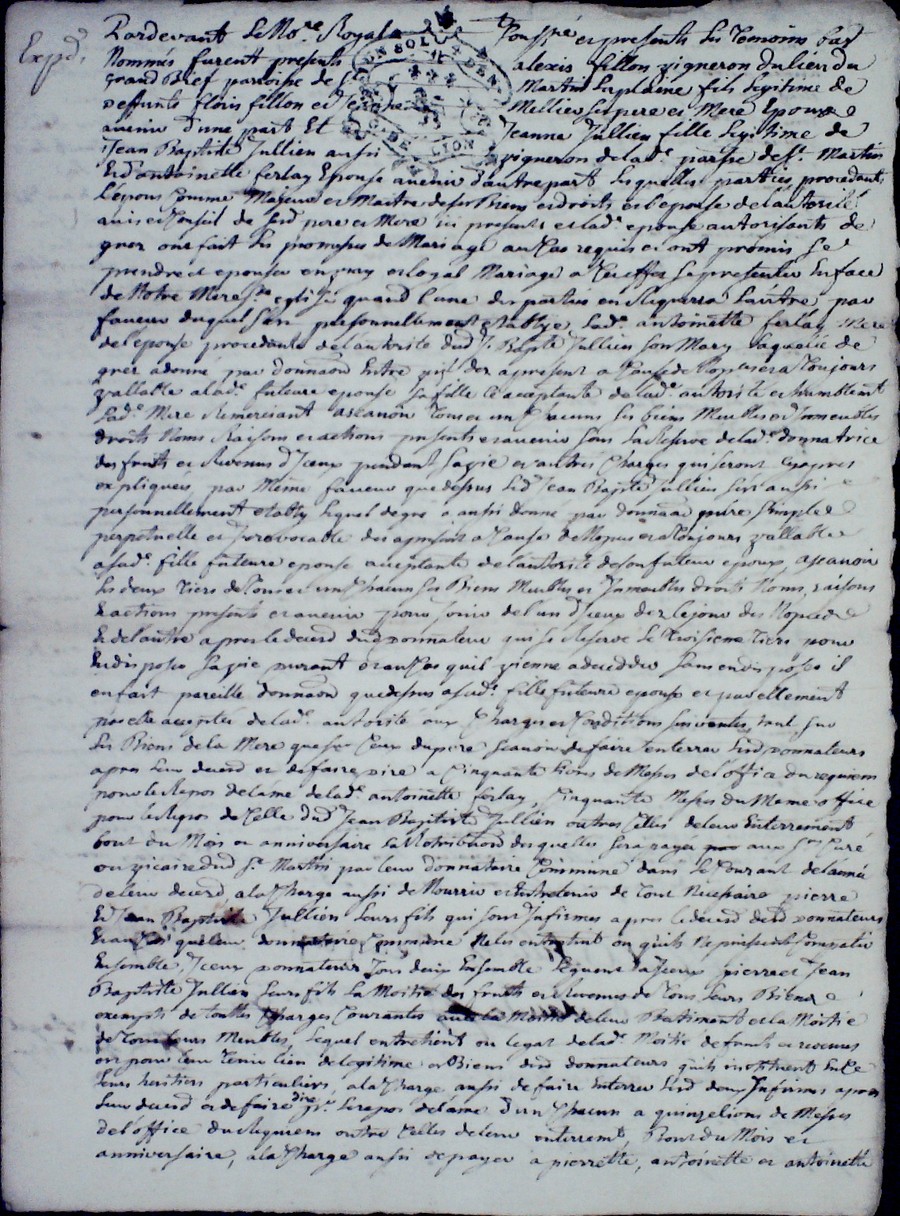 Expd.
Pardevant Le Nore. Royal a soussigné et presents les temoins bas
Nommés furent presents alexis fillon vigneron du lieu du
grand Brief paroisse de St Martin La plaine fils legitime de
deffunts floris fillon et Millier ses pere et Mere Epoux
avenir d'une part Et Jeanne Jullien fille legitime de
Jean Baptiste Jullien aussi vigneron de lade. parsse de St. Martin
Et d'antoinette ferlay Epouse avenir d'autre part Lesquelles parties procedants
L'epoux Comme Majeur et Maitre de ses Biens et droits et l'epouse de l'autorité
avis et Conseil de sesd pere et Mere ici presents et lade epouse autorisants de
grez ont fait les promesses de Mariage au Cas requis et ont promis se
prendre et epouser en vray et loyal Mariage a Cet effet se presenter En face
de Notre Mere Ste eglise quand l'une des parties en Requerra L'autre par
faveur duquel s'est personnellement etablye Lade. antoinette ferlay Mere
de l'epouse procedante de l'autorité dud Sr Bapte Jullien son Mary laquelle de
grez a donné par donnaon Entre vifs dez apresent a Cause de Nopces a Toujours
vallable a lade. future epouse sa fille Ce acceptante de lade. autorité et humblemt
Lade. Mere Remerciant ascavoir Tous et un Chacuns ses biens Meubles et Immeubles
droits Noms Raisons et actions presents et avenir sous La Reserve de lade. donnatrice
des fruits et Revenus d'Iceux pendant sa vie et autres Charges qui seront cy apres
expliquées par Même faveur que dessus led Jean Baptte Jullien s'est aussi
personnellement etably lequel de gré a aussi donné par donnaon pure Simple
perpetuelle et Irrevocable des apresent a Cause de Nopces et a Toujours vallable
a sade. fille future epouse acceptante de l'autorité de son futur epoux, ascavoir
les deux tiers de Tous et un Chacuns ses Biens Meubles et Immeubles droits Noms, raisons
et actions presents et avenir pour Jouir de l'un d'Iceux dez le jour des Nopces
Et de l'autre apres le deced dud donnateur qui se Reserve Le Troisieme tiers pour
En disposer sa vie durant et au Cas qu'il vienne a decedder sans en disposer il
en fait pareille donnaon que dessus a sade. fille future epouse et pareillement
par elle acceptée de lade. autorité aux Charges et Conditions suivantes, tant sur
les Biens de la Mere que sur Ceux du pere scavoir de faire enterrer lesd donnateurs
apres leur deced et de faire dire a Cinquante livres de Messes de l'office du requiem
pour le Repos de l'ame de lade. antoinette ferlay, Cinquante Messes du Meme office
pour le Repos de Celle dud Jean Baptiste Jullien outres Celles de leur Enterrement
bout du Mois et anniversaire La Retribution desquelles sera payé aux Srs Curé
ou vicaire dud St. Martin par leur donnataire Commune dans Le Courant de l'année
de leur deced a la Charge aussi de Nourrir et Entretenir de tout Necessaire pierre
Et Jean Baptiste Jullien leurs fils qui sont Infirmes apres le deced desd donnateurs
Et au Cas que leur donnataire Commune Ne les entretint ou qu'ils Ne puissent Compatir
Ensemble, Iceux donnateurs Tous deux Ensemble Leguent a Iceux pierre et Jean
Baptiste Jullien leurs fils La Moitié des fruits et Revenus de Tous leurs Biens
exempts de Touttes Charges Courantes La Moitié de leur Batiment et la Moitié
de Tous leurs Meubles, Lequel entretient ou legat de lade. Moitié de fruits et revenus
ont pour leur tenir lieu de legitime Biens desd donnateurs qu'ils instituent En Ce
leurs heritiers particuliers, a la Charge aussi de faire Enterrer Lesd deux Infirmes apres
leur deced et de faire dire pr. Le repos de l'ame d'un Chacun a quinze lions de Messes
de l'office du Requiem outre Celles de leur enterremt, Bout du Mois et
anniversaire, a la Charge aussi de payer a pierrette, antoinette et antoinette